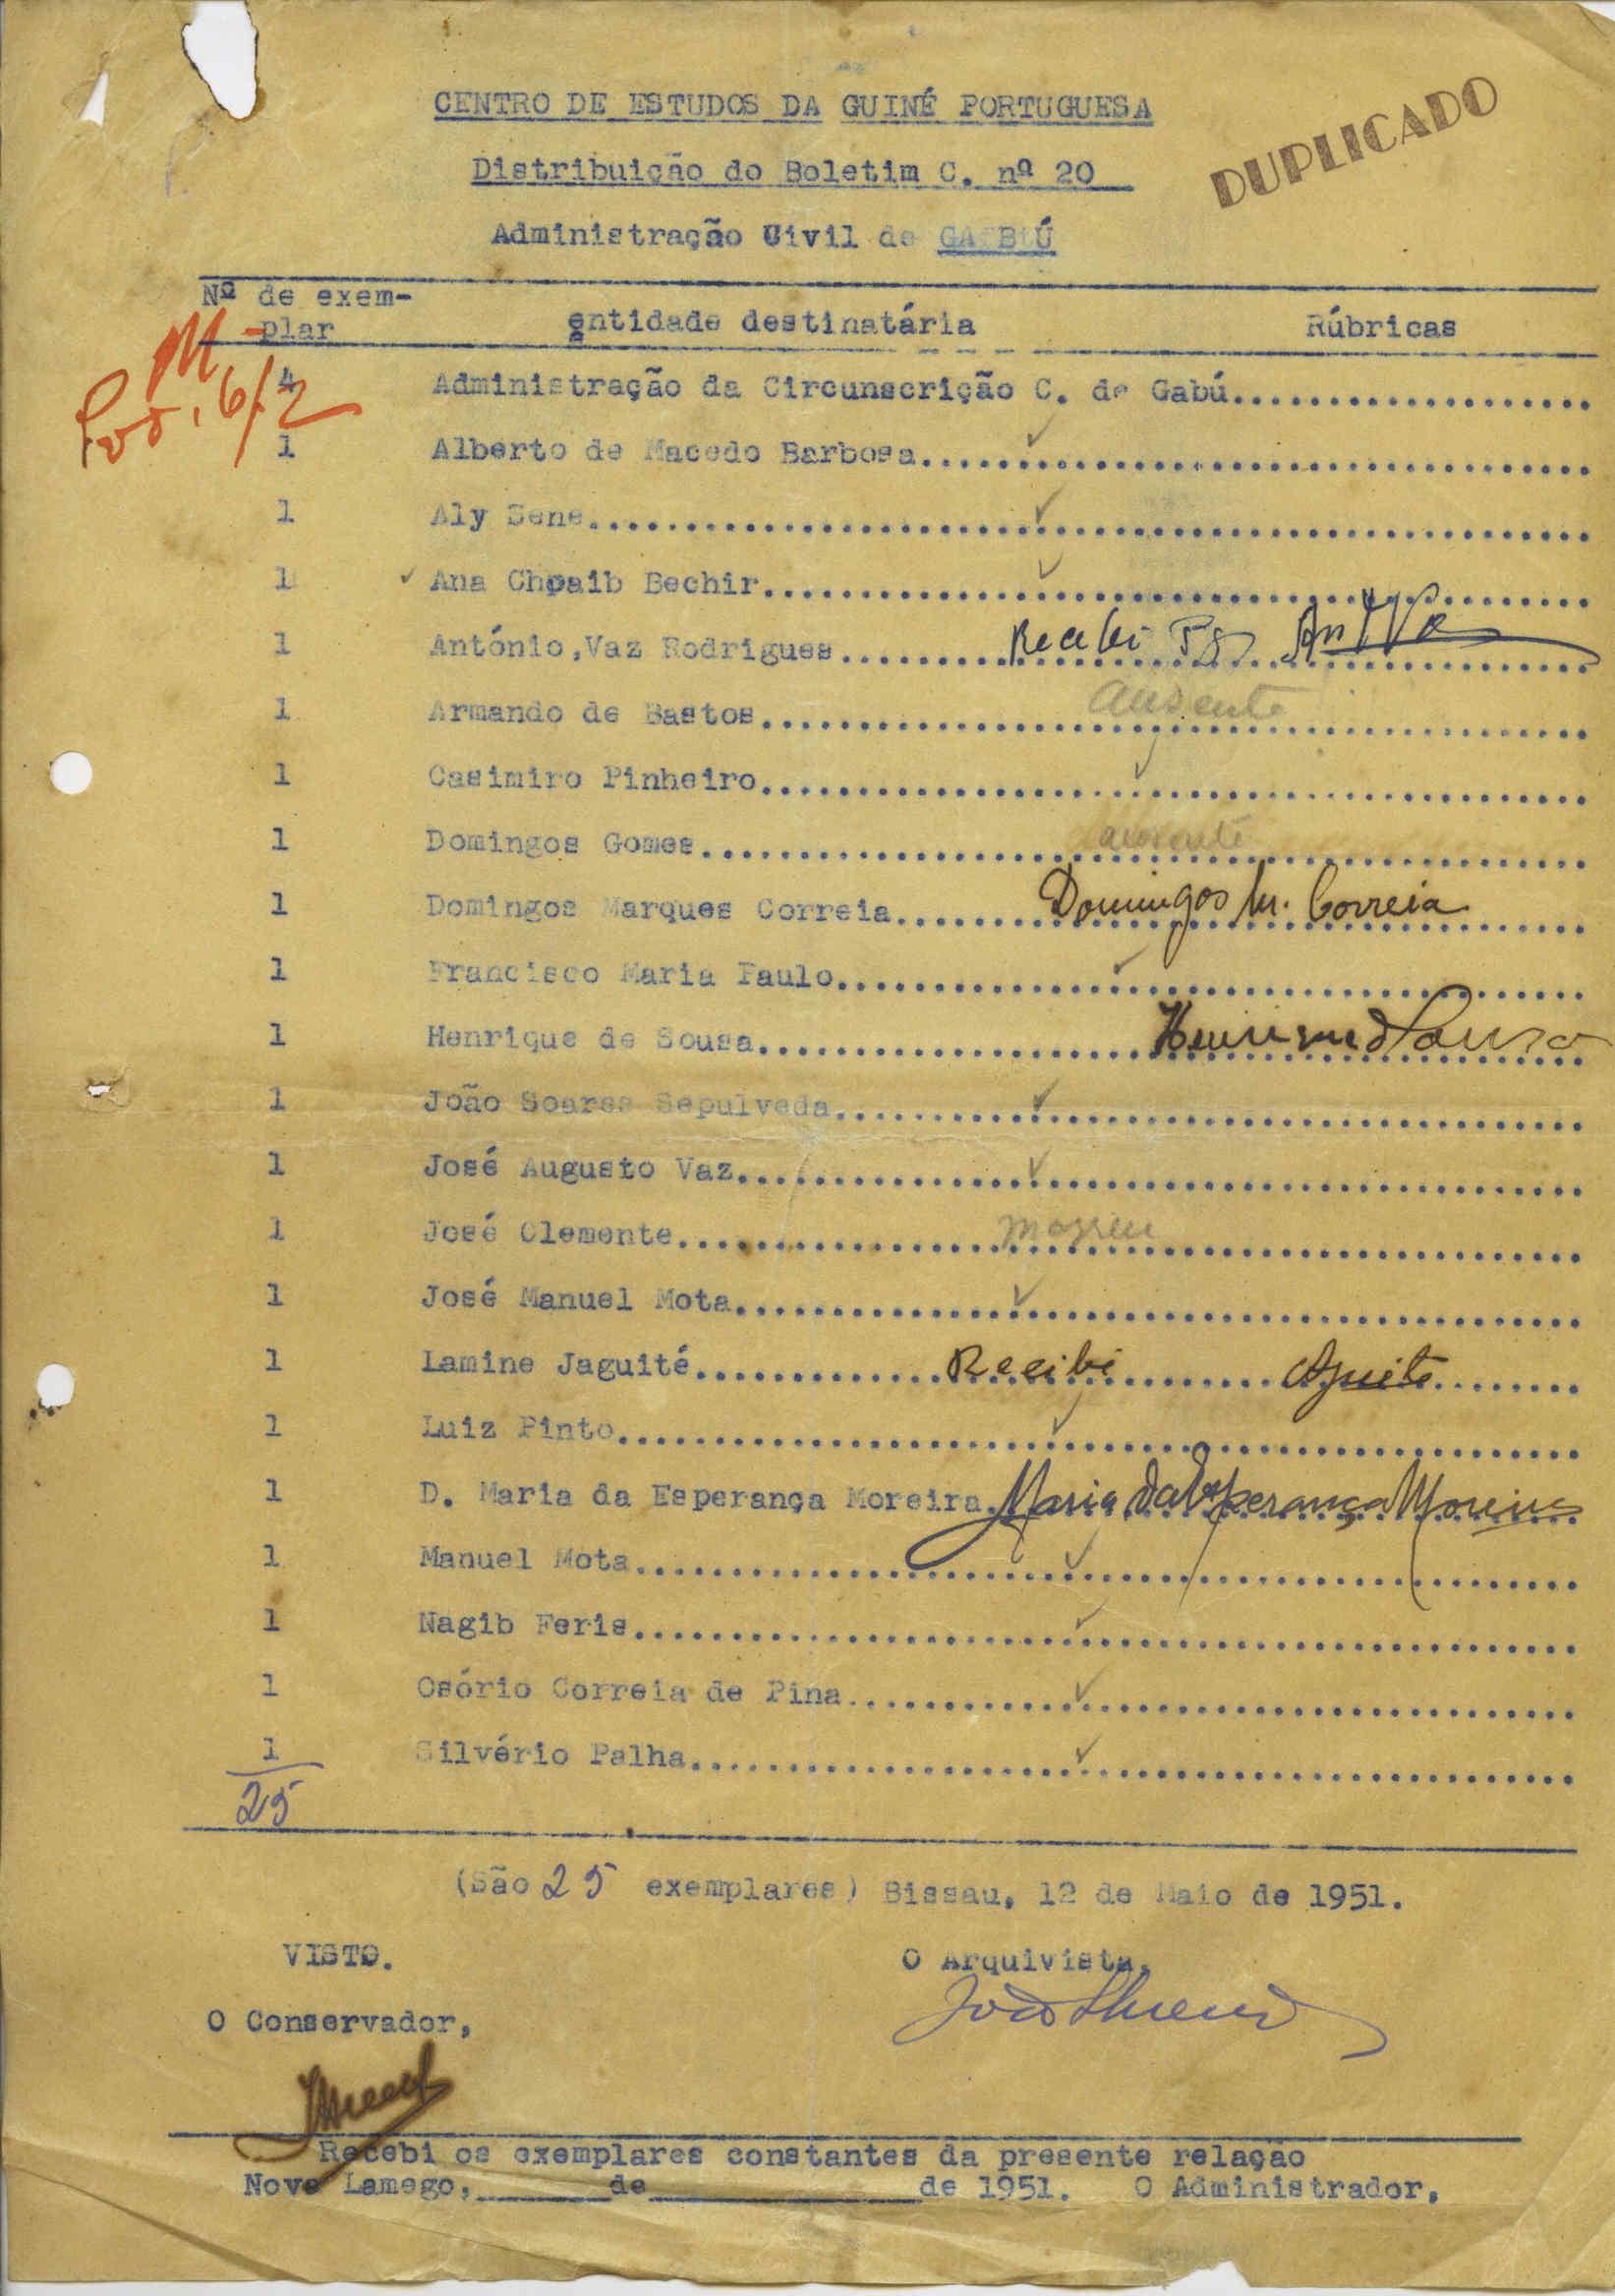 CENTRO DE ESTUDOS DA GUINÉ PORTUGUESA
DUPLICADO
Distribuição do Boletim C. nº 20
Administração Civil de GABÚ
Nº de exem-
-plar entidade destinatária Rúbricas
4 Administração da Circunscrição C. de Gabú....................
6/2
1 Alberto de Macedo Barbosa...................................
1 Aly Sene....................................................
1 Ana Chpaib Bechir...........................................
1 António,Vaz Rodrigues......... Recebi
1 Armando de Bastos................... ausente
1 Casimiro Pinheiro...........................................
1 Domingos Gomes................... ausente
1 Domingos Marques Correia........ Domingos M. Correia
1 Francisco Maria Paulo.......................................
1 Henrique de Sousa..................... Henrique d Sousa
1 João Soares Sepulveda.......................................
1 José Augusto Vaz............................................
1 José Clemente................. morreu
1 José Manuel Mota............................................
1 Lamine Jaguité............. Recibi
1 Luiz Pinto..................................................
1 D. Maria da Esperança Moreira. Maria da Esperança Moreira
1 Manuel Mota.................................................
1 Nagib Feris.................................................
1 Osório Correia de Pina......................................
1 Silvério Palha..............................................
25
(São 25 exemplares) Bissau, 12 de Maio de 1951.
VISTO.
O Arquivista,
O Conservador,
Recebi os exemplares constantes da presente relação
Nova Lamego,______de______________de 1951. O Administrador,